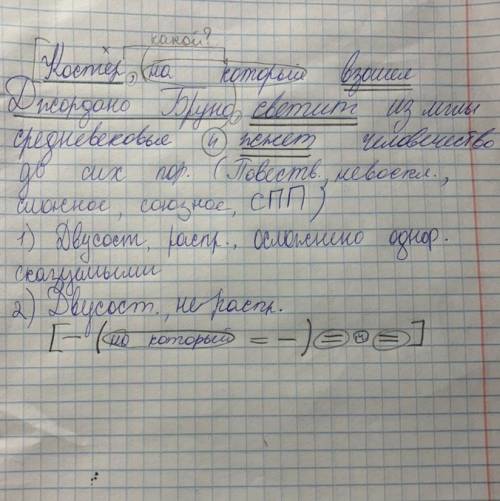 какой?
[Костёр, (на который взошел
Джордано Бруно, светит из мглы
средневековья и жжет человечество
до сих пор. (Повеств., невоскл.,
сложное, союзное, СПП)
1) Двусост, распр., осложнено однор.
сказуемыми
2) Двусост., не распр.
[ – ( на который = – ) = и = ]